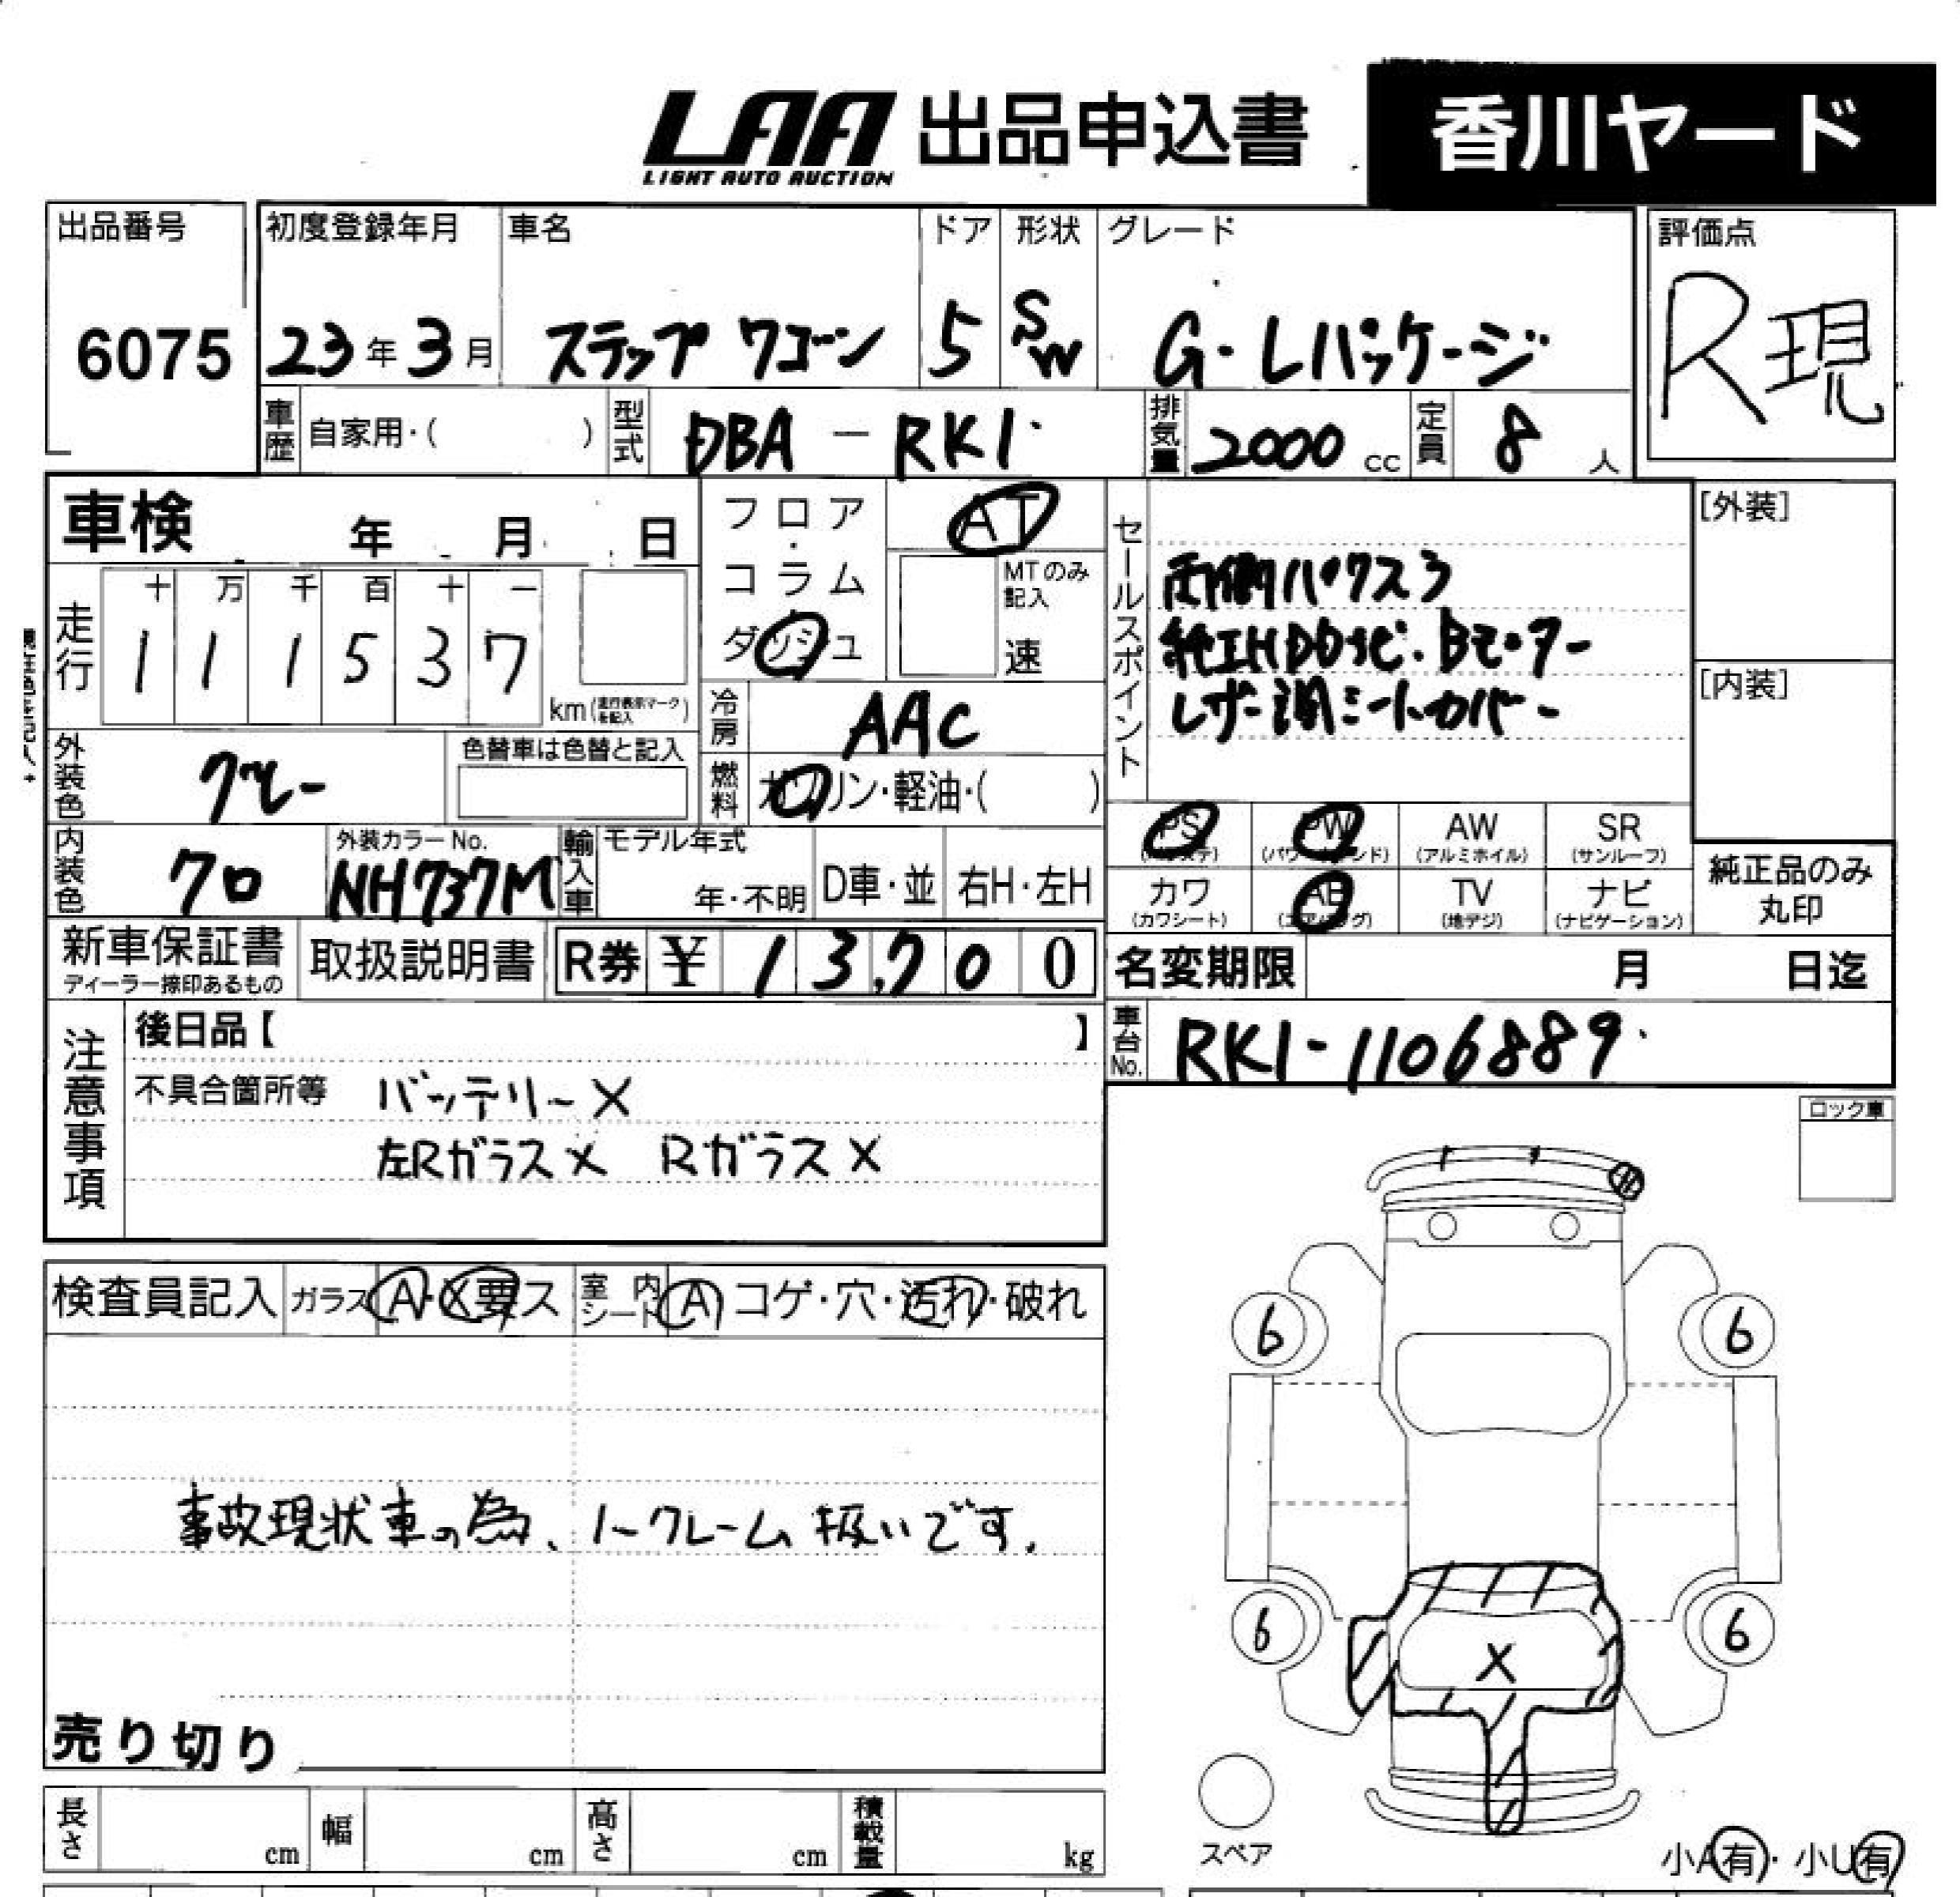 LAA 出品申込書 香川ヤード
LIGHT AUTO AUCTION
出品番号 初度登録年月 車名 ドア 形状 グレード 評価点
6075 23年3月 ステップワゴン 5 SW G・Lパッケージ R現
車歴 自家用・( ) 型式 DBA-RK1 排気量 2000cc 定員 8人
車検 年 月 日
フロア・コラム・ダッシュ AT
MTのみ記入 速
走行 十 万 千 百 十 一
1 1 1 5 3 7 km(走行表示マークを記入)
セールスポイント
両側パワスラ
純正HDDナビ・Bモニター
レザー調シートカバー
[外装]
[内装]
冷房 AAC
外装色 グレー 色替車は色替と記入
燃料 ガソリン・軽油・( )
PS (パワステ) PW (パワーウィンド) AW (アルミホイル) SR (サンルーフ)
カワ (カワシート) AB (エアバッグ) TV (地デジ) ナビ (ナビゲーション)
純正品のみ丸印
内装色 クロ 外装カラーNo. NH737M 輸入車 モデル年式 年・不明 D車・並 右H・左H
新車保証書 ディーラー捺印あるもの 取扱説明書 R券 ¥ 13,700 名変期限 月 日迄
車台No. RK1-1106889
注意事項
後日品【 】
不具合箇所等 バッテリー×
左Rガラス× Rガラス×
ロック車
検査員記入 ガラス A・X要ス 室内シート A コゲ・穴・汚れ・破れ
事故現状車の為、ノークレーム扱いです.
売り切り
6 6
6 6
X
スペア
小A有・小U有
長さ cm 幅 cm 高さ cm 積載量 kg